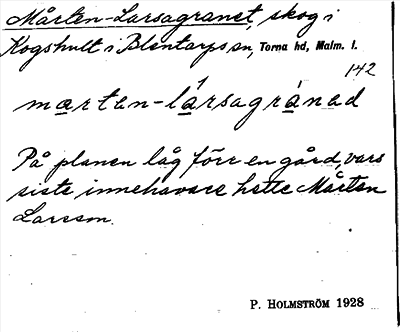 Mårten-Larsagranet, skog i
Kogshult i Blentarps sn, Torna hd, Malm. l.
142
mærten-lársagránad
På planen låg förr en gård, vars
siste innehavare hette Mårten
Larsson.
P. HOLMSTRÖM 1928